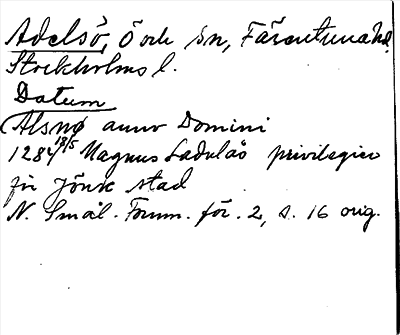 Adelsö, ö och sn, Färentuna hd.
Stockholms l.
Datum
Alsnø anno Domini
1284 18/5 Magnus Ladulås privilegier
för Jönk stad
N. Smål. Fornm. för. 2, s. 16 orig.